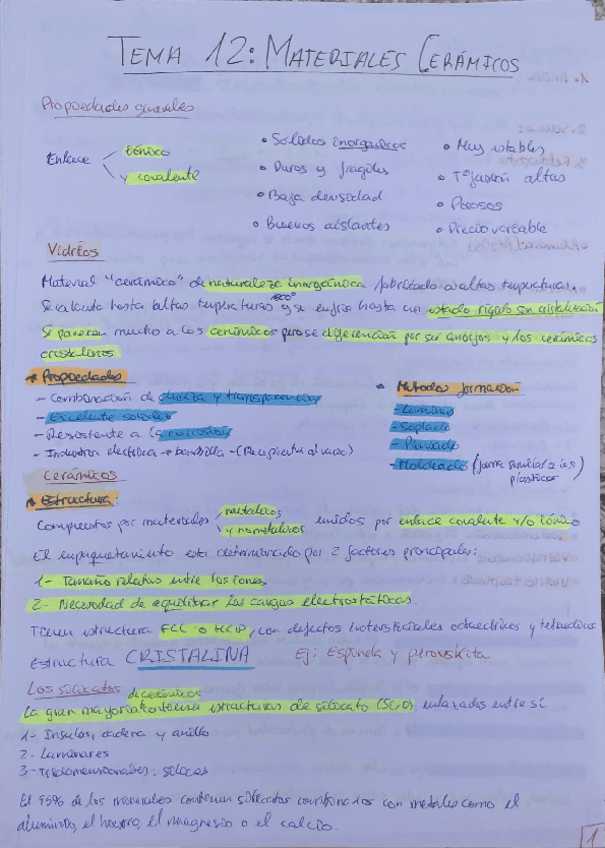 TEMA 12: MATERIALES CERÁMICOS
Propiedades generales
Enlace
iónico
y covalente
• Solidos inorganicos
• Duros y fragiles
• Baja densidad
• Buenos aislantes
• Muy estables
• Tª fusión altas
• Porosos
• Precio variable
Vidrios
Material "cerámico" de naturaleza inorgánica fabricado a altas temperaturas.
Se calienta hasta altas temperaturas y se enfria hasta un estado rígido sin cristalización
Se parecen mucho a los cerámicos pero se diferencian por ser amorfos y los cerámicos
cristalinos
* Propiedades
- Combinación de dureza y transparencia
- Excelente
- Resistente a la corrosión
- Industria electrica → bombilla - (Recipientes al vacio)
• Metodos formación
- Lamina
- Soplado
- Prensado
- Moldeado (forma similar a los
plasticos)
Cerámicos
* Estructura:
Compuestos por materiales metalicos
y no metalicos
unidos por enlace covalente y/o iónico
El empaquetamiento esta determinado por 2 factores principales:
1- Tamaño relativo entre los iones
2- Necesidad de equilibrar las cargas electrostáticas.
Tienen estructura FCC o HCP, con defectos intersticiales octaedricos y tetraedricos
Estructura CRISTALINA Ej: Espinela y perovskita
Los silicatos
de cerámicos
La gran mayoria contienen estructuras de silicato enlazados entre sí
1- Insulas, cadena y anillo
2- Laminares
3- Tridimensionales: silices
El 95% de los minerales contienen silicatos combinados con metales como el
aluminio, el hierro, el magnesio o el calcio.
1